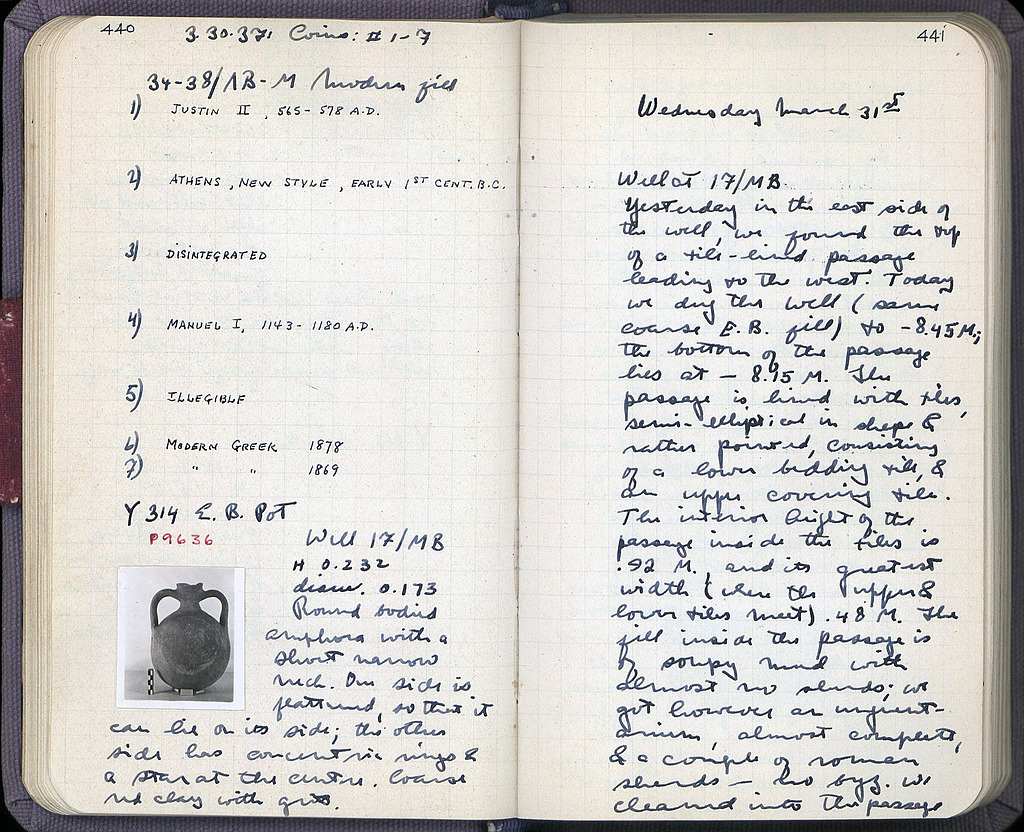 440
3.30.37: Coins: # 1-7
34-38/ΛB-M Modern fill
1) JUSTIN II, 565-578 A.D.
2) ATHENS, NEW STYLE, EARLY 1ST CENT. B.C.
3) DISINTEGRATED
4) MANUEL I, 1143-1180 A.D.
5) ILLEGIBLE
6) MODERN GREEK 1878
7) " " 1869
Y 314 E. B. Pot
P9636
Well 17/MB
H 0.232
diam. 0.173
Round bodied
amphora with a
short narrow
neck. One side is
flattened, so that it
can lie on its side; the other
side has concentric rings &
a star at the centre. Coarse
red clay with grits.
441
Wednesday March 31st
Well at 17/MB
Yesterday in the east side of
the well, we found the top
of a tile-lined passage
leading to the west. Today
we dug the well (same
coarse E.B. fill) to -8.45 M;
the bottom of the passage
lies at - 8.15 M. The
passage is lined with tiles,
semi-elliptical in shape &
rather pointed, consisting
of a lower bedding tile, &
an upper covering tile.
The interior height of the
passage inside the tiles is
.92 M., and its greatest
width (where the upper &
lower tiles meet) .48 M. The
fill inside the passage is
of soupy mud with
almost no sherds; we
got however an unguent-
arium, almost complete,
& a couple of roman
sherds - no byz. We
cleaned into the passage